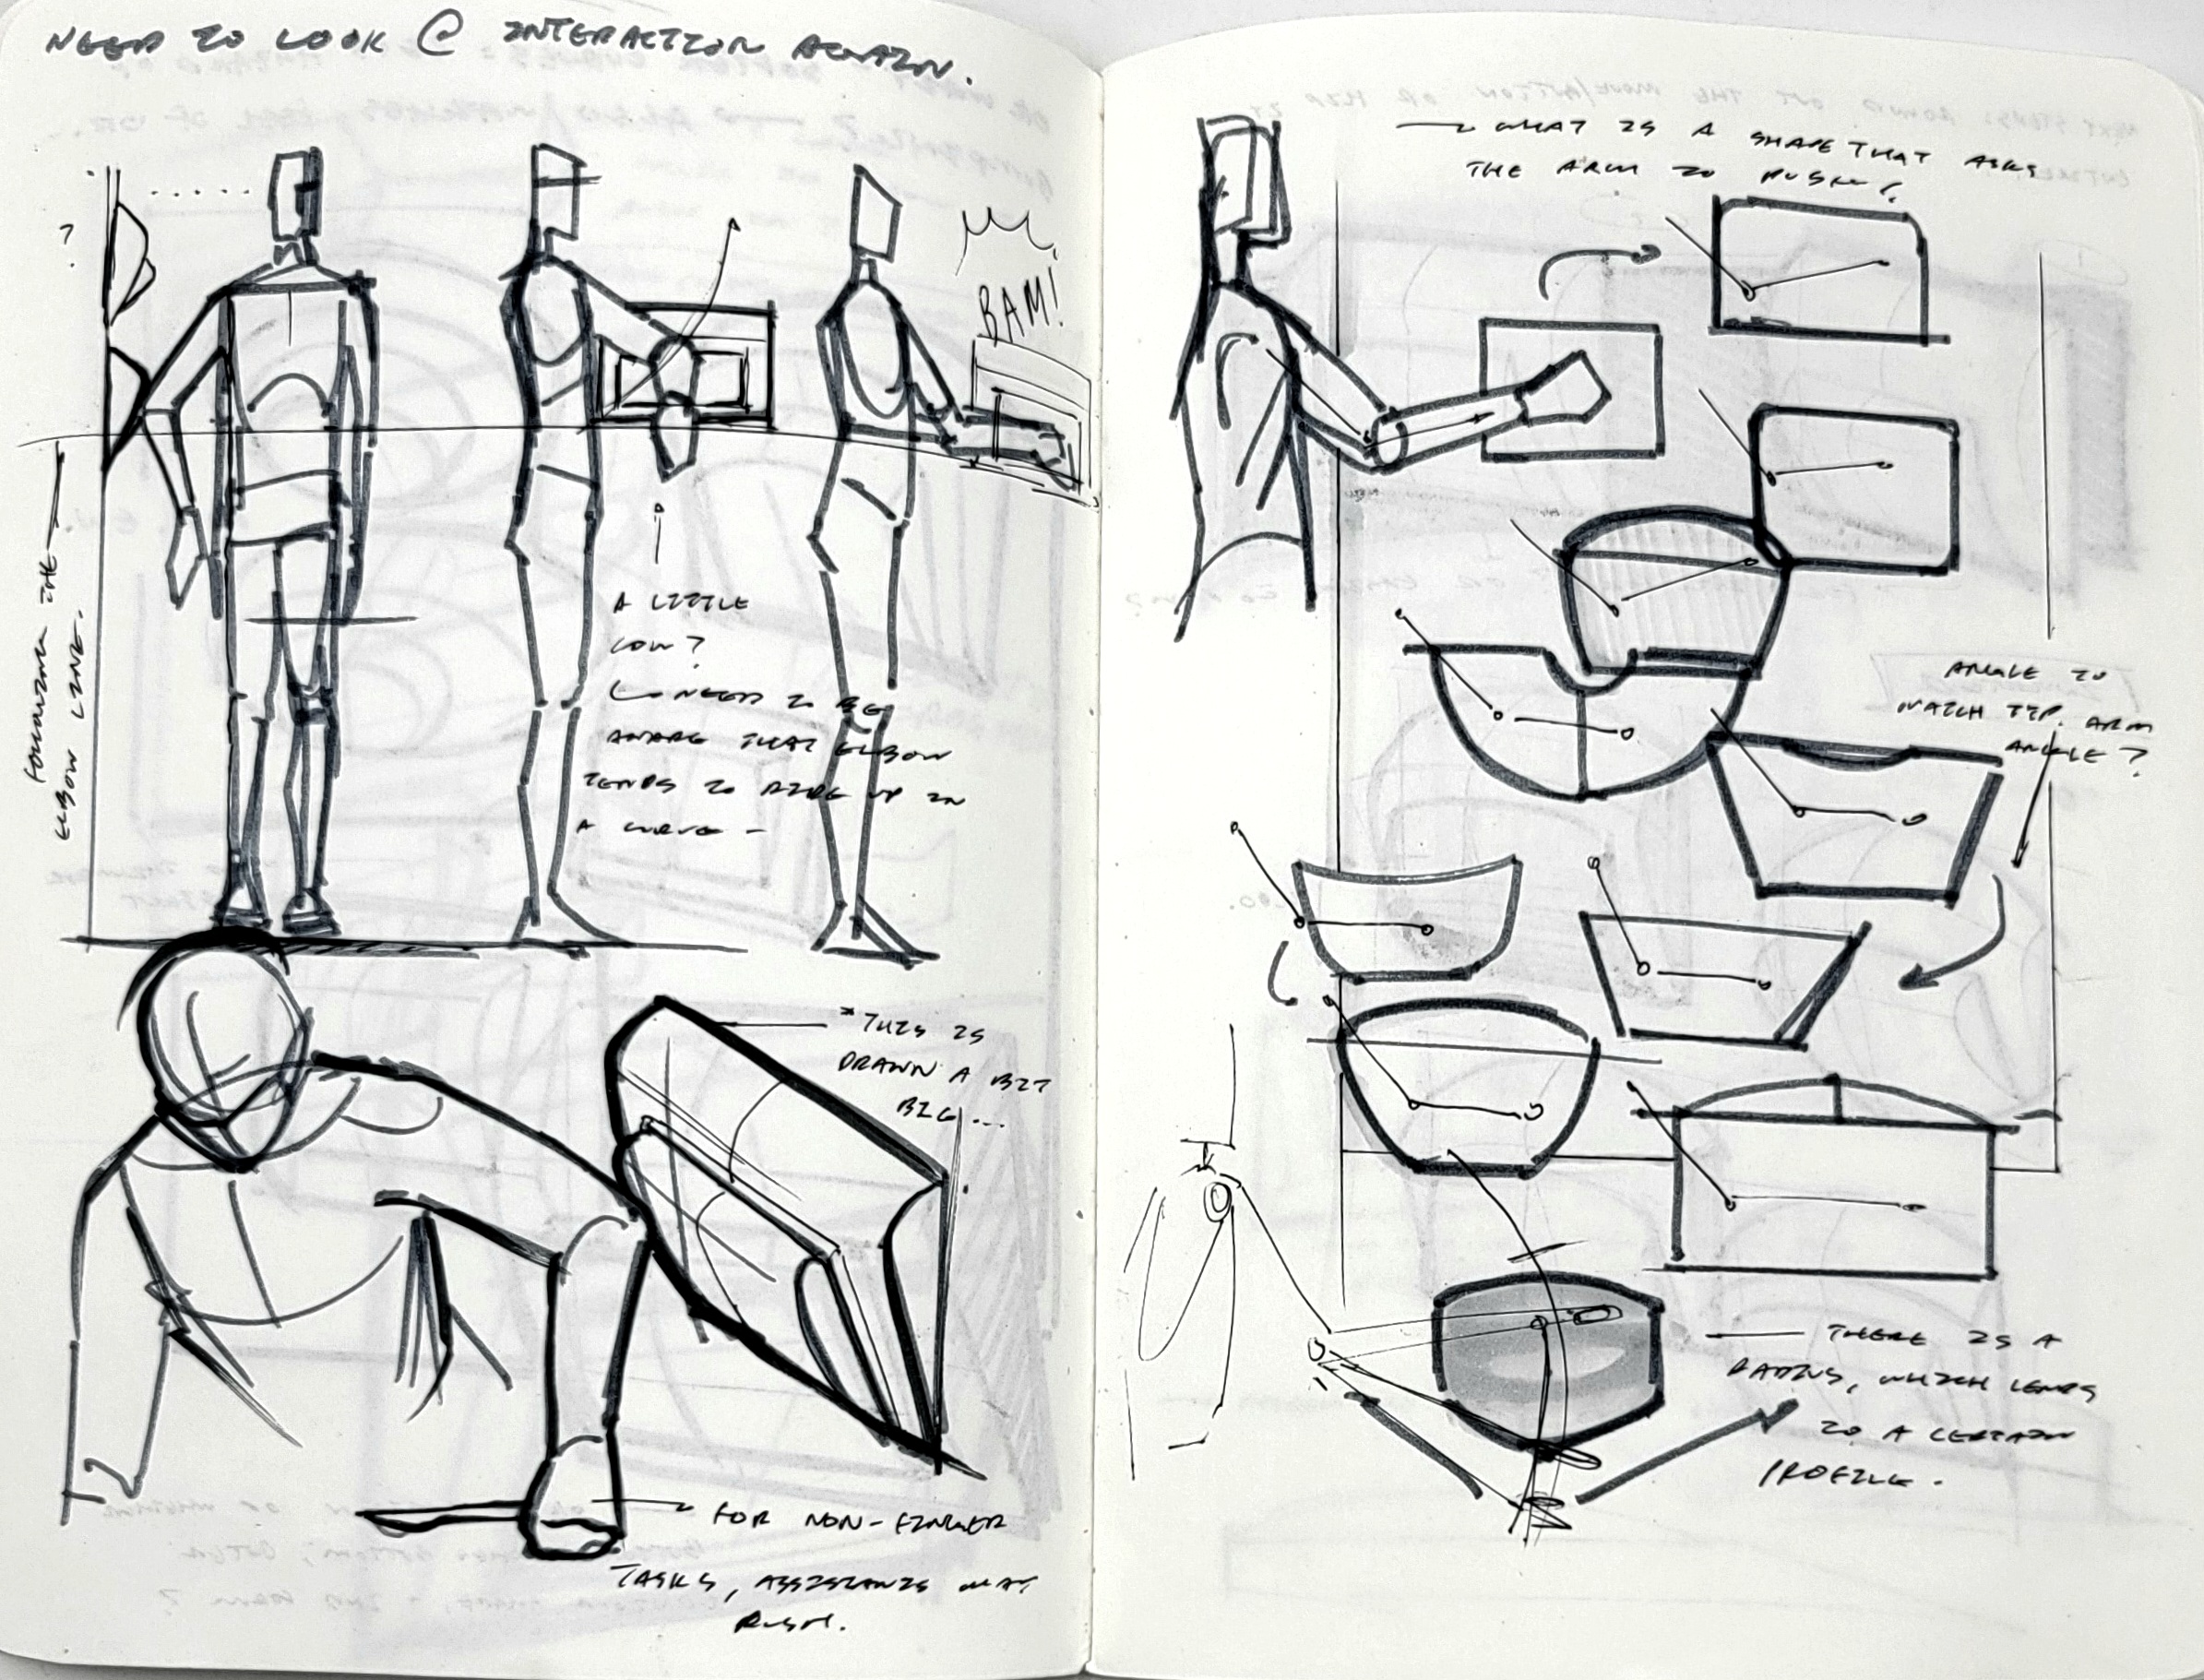 NEED TO LOOK @ INTERACTION AGAIN.
?
BAM!
FOLLOWING THE
ELBOW LINE.
A LITTLE
LOW?
NEED TO BE
AWARE THAT ELBOW
TENDS TO RIDE UP IN
A CURVE –
*THIS IS
DRAWN A BIT
BIG...
FOR NON-FINGER
TASKS, ASSISTANTS MAY
PUSH.
WHAT IS A SHAPE THAT ASKS
THE ARM TO PUSH?
ANGLE TO
MATCH TYP. ARM
ANGLE?
THERE IS A
RADIUS, WHICH LENDS
TO A CERTAIN
PROFILE.